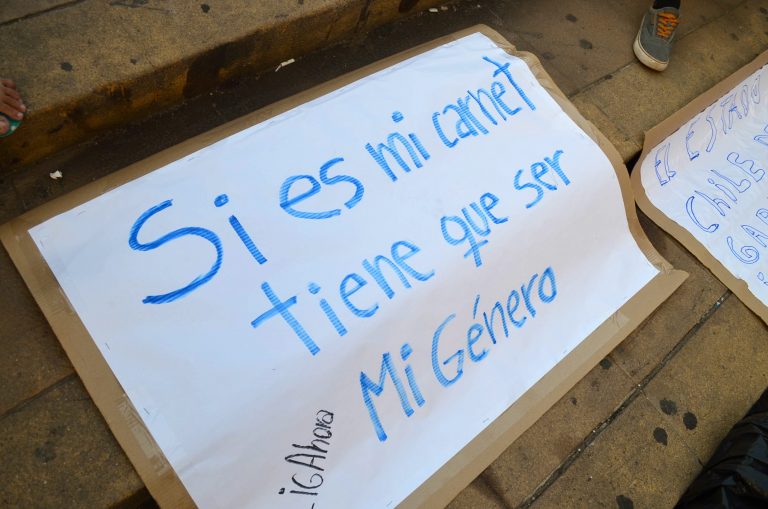 Si es mi carnet
tiene que ser
Mi Género
iGAhora
EL ESTADO
CHILE